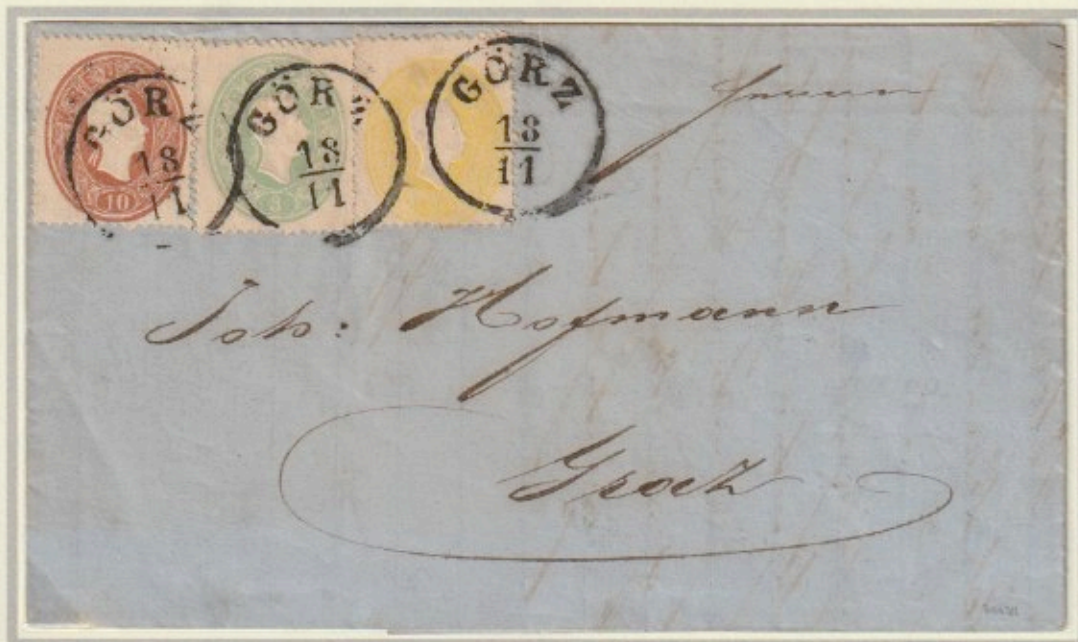 10
3
GÖRZ
18
11
GÖRZ
18
11
GÖRZ
18
11
Herrn
Joh: Hofmann
Gratz